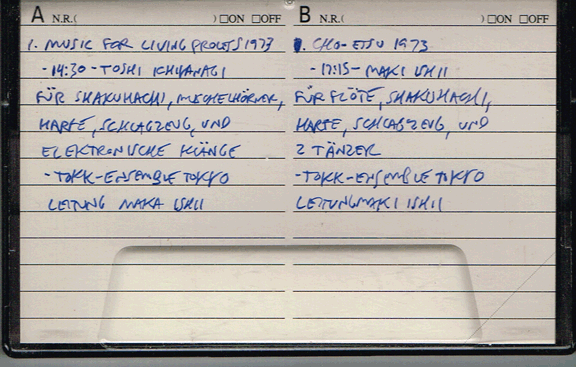 A N.R.( ) □ON □OFF
1. MUSIC FOR LIVING PROCESS 1973
-14:30-TOSHI ICHIYANAGI
FÜR SHAKUHACHI, MUSCHELHÖRNER,
HARFE, SCHLAGZEUG, UND
ELEKTRONISCHE KLÄNGE
-TOKK-ENSEMBLE TOKYO
LEITUNG MAKA ISHII
B N.R.( ) □ON □OFF
1. CHO-ETSU 1973
-17:15-MAKI ISHII
FÜR FLÖTE, SHAKUHACHI,
HARFE, SCHLAGZEUG, UND
2 TÄNZER
-TOKK-ENSEMBLE TOKYO
LEITUNG MAKI ISHII